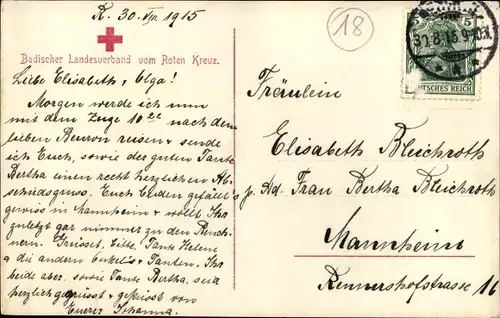 K. 30. VIII. 1915
18
Badischer Landesverband vom Roten Kreuz.
Liebe Elisabeth, Olga!
Morgen werde ich nun
mit dem Zuge 10 22 nach dem
lieben Beuron reisen + sende
ich Euch, sowie der guten Tante
Bertha einen recht herzlichen Ab-
schiedsgruss. Euch beiden gefällt's
gewiss in Mannheim + wollt Ihr
zuletzt gar nimmer zu den
nern. Grüsset, bitte, Tante Helene
u die andern Onkel's + Tanten. Ihr
beide aber, sowie Tante Bertha, seid
herzlich gegrüsst + geküsst von
Eurer Johanna.
5
DEUTSCHES REICH
Fräulein
Elisabeth Bleichroth
p. Ad. Frau Bertha Bleichroth
Mannheim
Rennershofstrasse 16